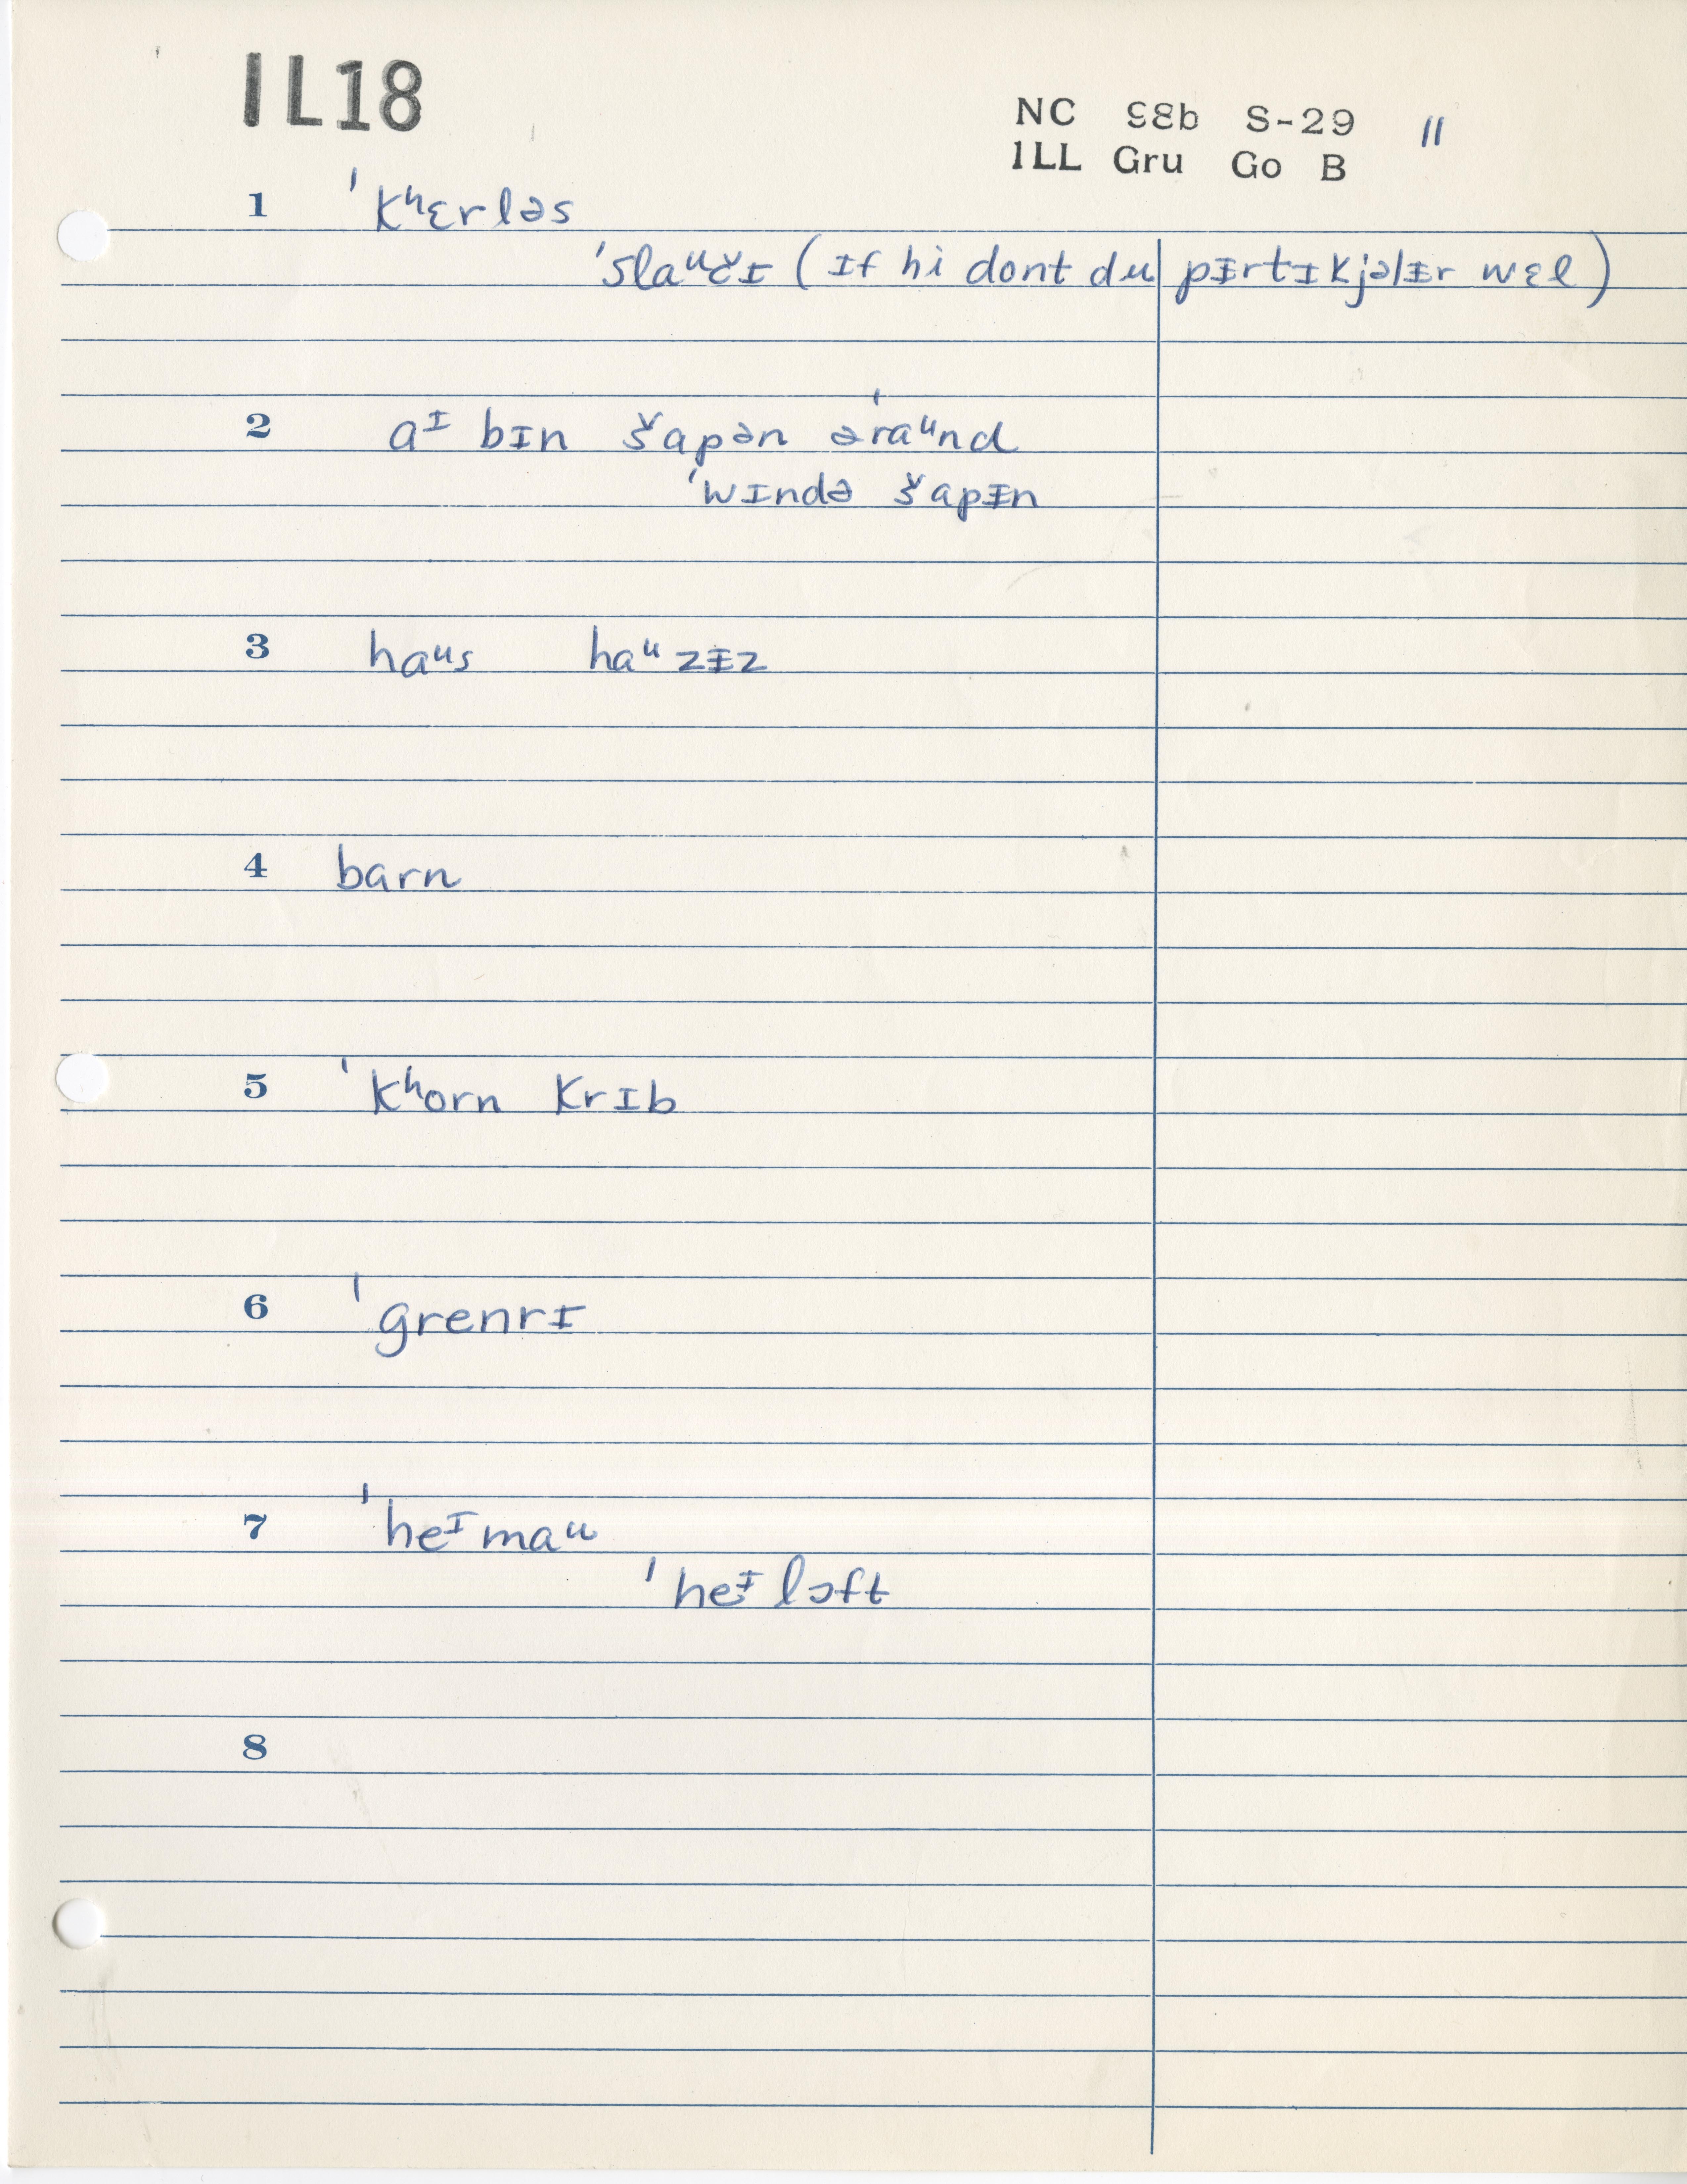 IL18
NC S8b S-29 11
ILL Gru Go B
1 ˈkʰɛrləs
ˈslaᵘčɪ (ɪf hi dont du pɨrtɪkjəlɨr wɛl)
2 aᴵ bɪn šapən əˈraᵘnd
ˈwɪndə šapɨn
3 haᵘs haᵘzɨz
4 barn
5 ˈkʰorn krɪb
6 ˈgrenrɪ
7 ˈheᴵmaᵘ
ˈheᶤlɔft
8